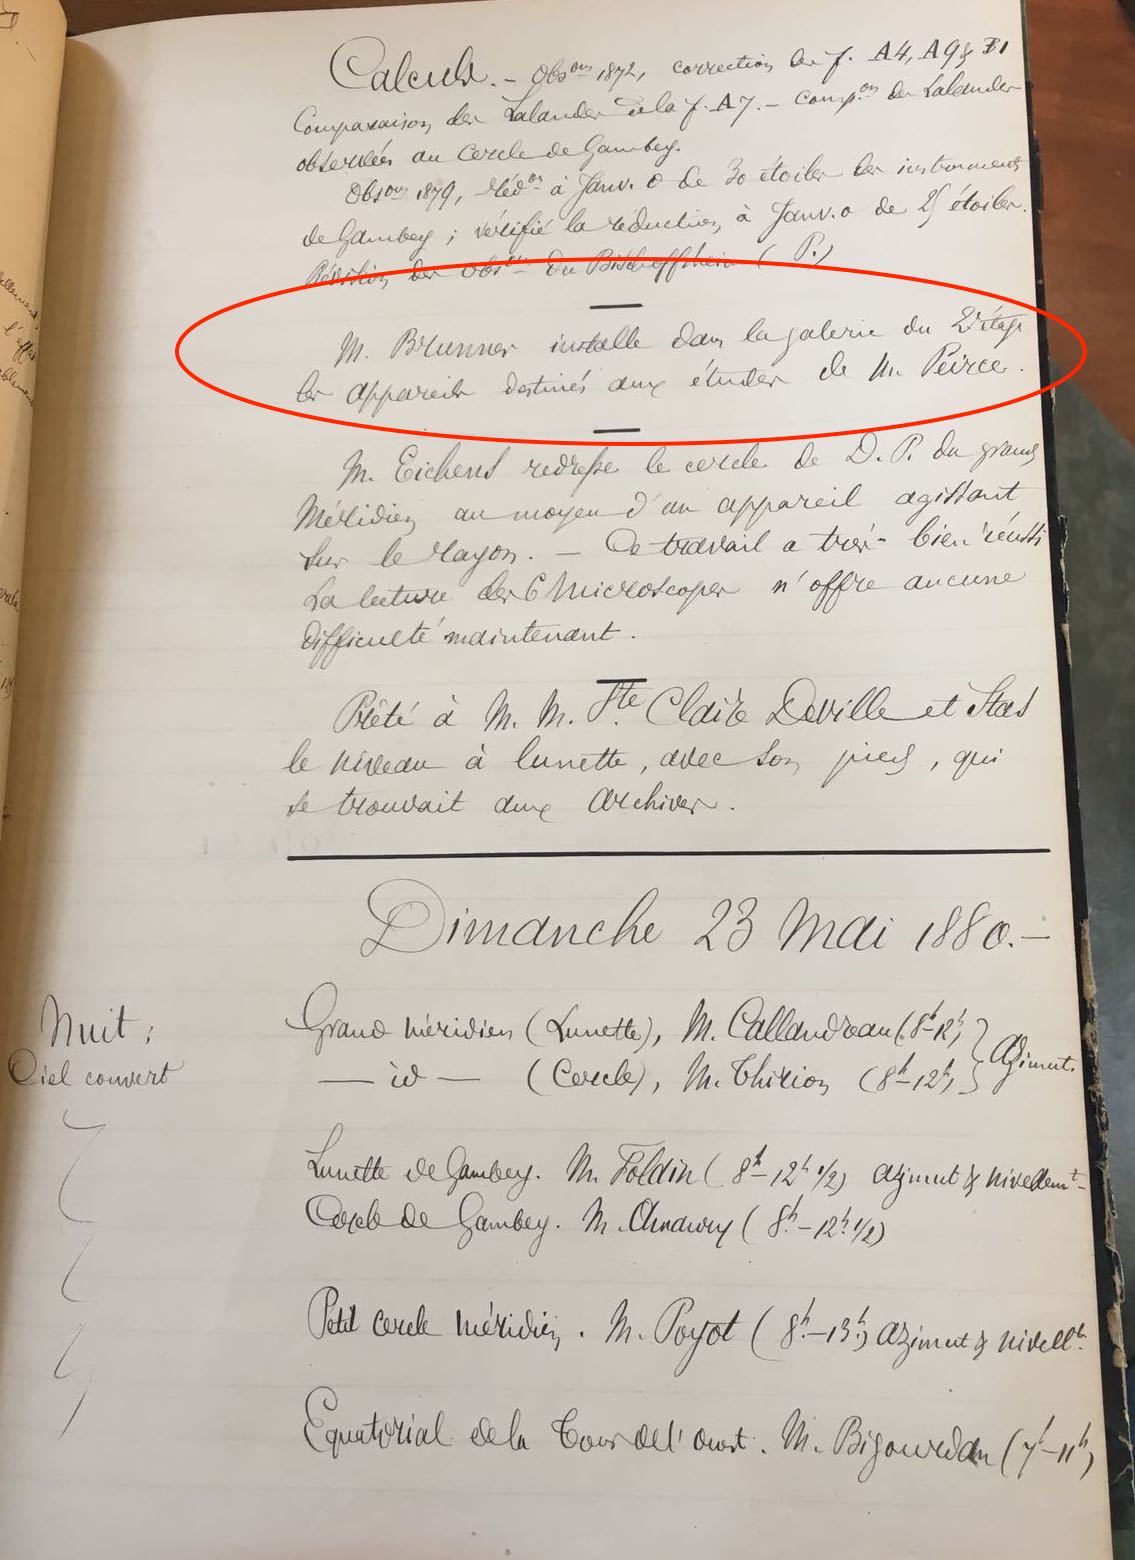 Calculs. — Obs^ons 1872, correction des f. A4, A9 & B1
Comparaison des Lalandes de la f. A7. — Comp^on des Lalandes
observées au Cercle de Gambey.
Obs^ons 1879, réd^on à Janv. 0 de 30 étoiles des instruments
de Gambey ; vérifié la réduction à Janv. 0 de 25 étoiles.
Révision des obs^ons du Bischoffsheim (P.)
M. Brunner installe dans la galerie du 2d étage
les appareils destinés aux études de M. Peirce.
M. Eichens redresse le cercle de D. P. du grand
Méridien au moyen d'un appareil agissant
sur le rayon. — Ce travail a très bien réussi
La lecture des 6 Microscopes n'offre aucune
difficulté maintenant.
Prêté à M. M. Ste Claire Deville et Stas
le niveau à lunette, avec son pied, qui
se trouvait aux Archives.
Dimanche 23 Mai 1880. —
Nuit :
Ciel couvert
Grand Méridien (Lunette), M. Callandreau (8h–12h) } Azimut.
— id — (Cercle), M. Thirion (8h–12h)
Lunette de Gambey. M. Foldin (8h–12h 1/2) azimut & nivellemt
Cercle de Gambey. M. (8h–12h 1/2)
Petit cercle Méridien. M. Poyot (8h–13h) azimut & nivellt.
Equatorial de la Tour de l'ouest. M. Bigourdan (7h–11h)